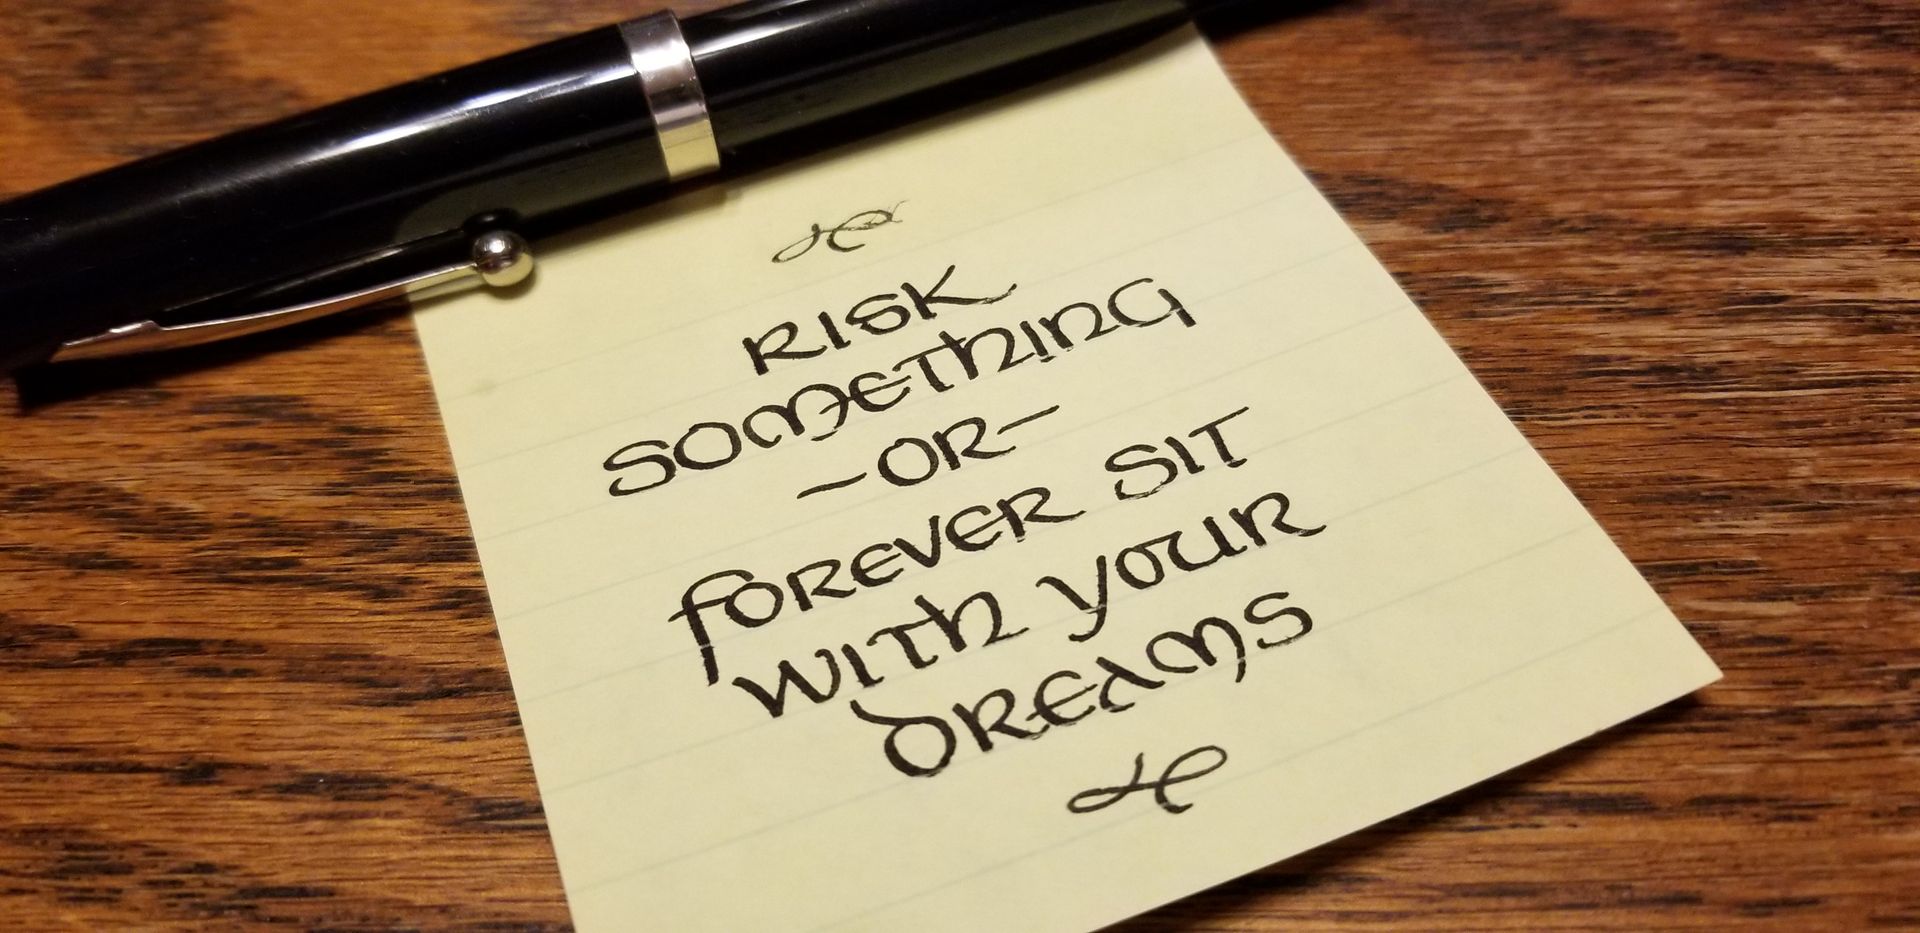 RISK
SOMETHING
-OR-
FOREVER SIT
WITH YOUR
DREAMS